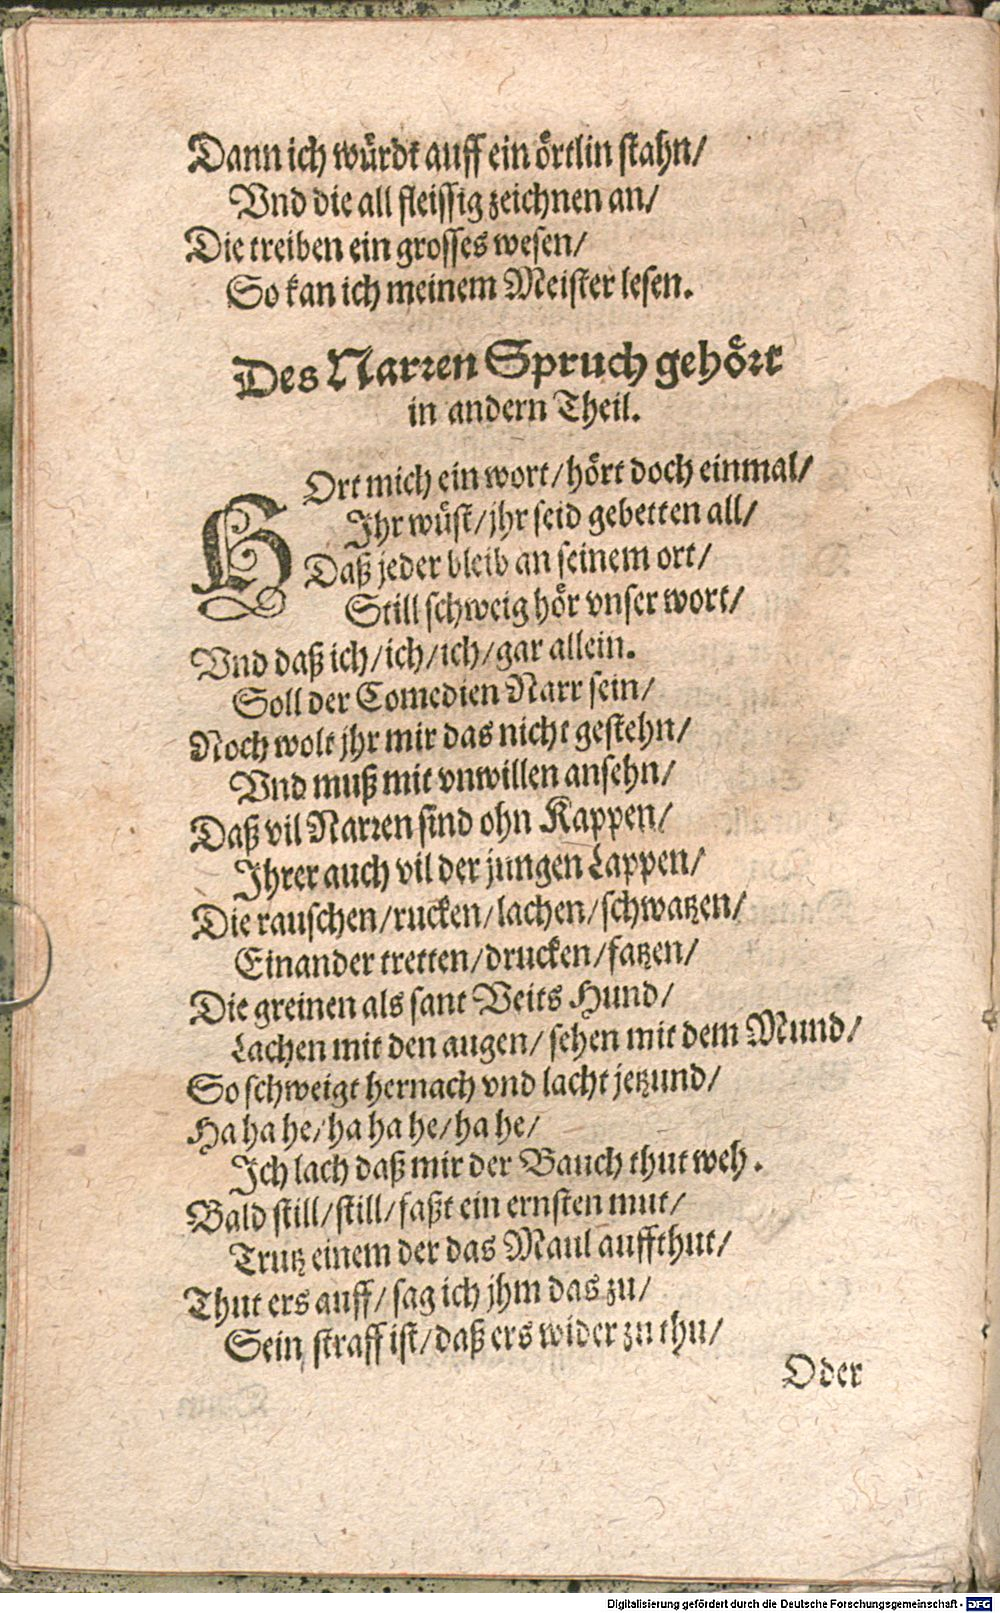 Dann ich würdt auff ein örtlin stahn/
Vnd die all fleissig zeichnen an/
Die treiben ein grosses wesen/
So kan ich meinem Meister lesen.
Des Narren Spruch gehört
in andern Theil.
HOrt mich ein wort/ hört doch einmal/
Ihr wüst/ jhr seid gebetten all/
Daß jeder bleib an seinem ort/
Still schweig hör vnser wort/
Vnd daß ich/ ich/ ich/ gar allein.
Soll der Comedien Narr sein/
Noch wolt jhr mir das nicht gestehn/
Vnd muß mit vnwillen ansehn/
Daß vil Narren sind ohn Kappen/
Ihrer auch vil der jungen Lappen/
Die rauschen/ rucken/ lachen/ schwatzen/
Einander tretten/ drucken/ fatzen/
Die greinen als sant Veits Hund/
Lachen mit den augen/ sehen mit dem Mund/
So schweigt hernach vnd lacht jetzund/
Ha ha he/ ha ha he/ ha he/
Ich lach daß mir der Bauch thut weh.
Bald still/ still/ faßt ein ernsten mut/
Trutz einem der das Maul auffthut/
Thut ers auff/ sag ich jhm das zu/
Sein straff ist/ daß ers wider zu thu/
Oder
Digitalisierung gefördert durch die Deutsche Forschungsgemeinschaft - DFG